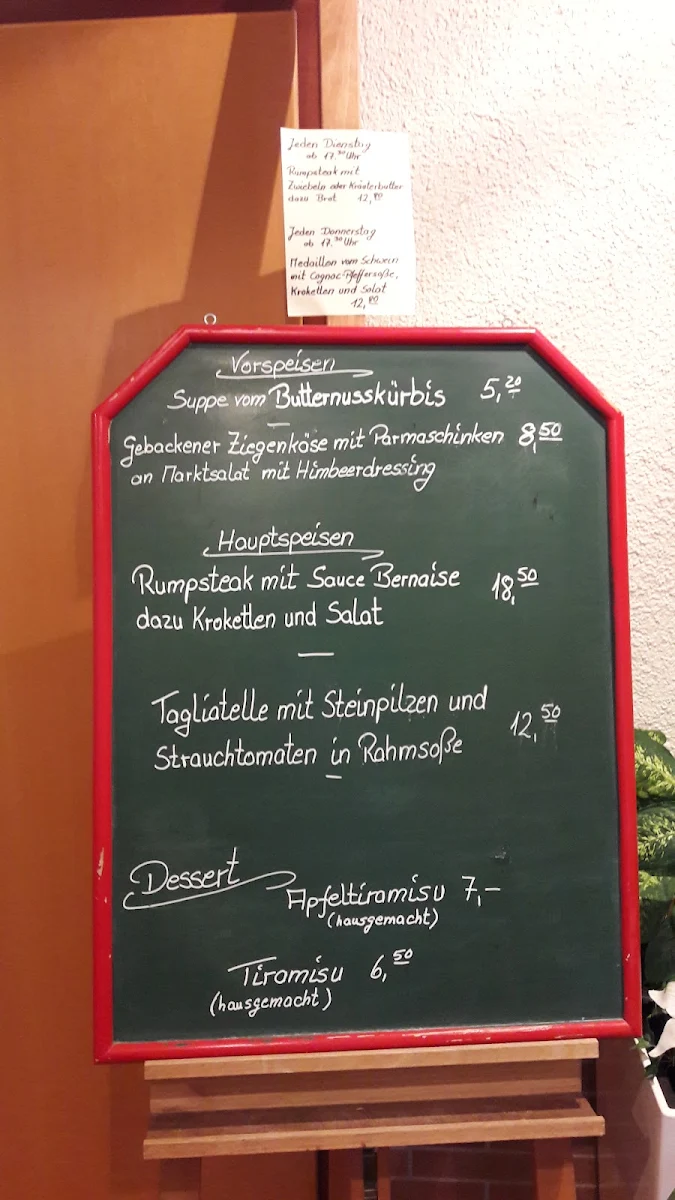 Jeden Dienstag
ab 17.30 Uhr
Rumpsteak mit
Zwiebeln oder Kräuterbutter
dazu Brot 12,80
Jeden Donnerstag
ab 17.30 Uhr
Medaillon vom Schwein
mit Cognac-Pfeffersoße,
Kroketten und Salat
12,80
Vorspeisen
Suppe vom Butternusskürbis 5,20
Gebackener Ziegenkäse mit Parmaschinken 8,50
an Marktsalat mit Himbeerdressing
Hauptspeisen
Rumpsteak mit Sauce Bernaise 18,50
dazu Kroketten und Salat
Tagliatelle mit Steinpilzen und
Strauchtomaten in Rahmsoße 12,50
Dessert
Apfeltiramisu 7,-
(hausgemacht)
Tiramisu 6,50
(hausgemacht)